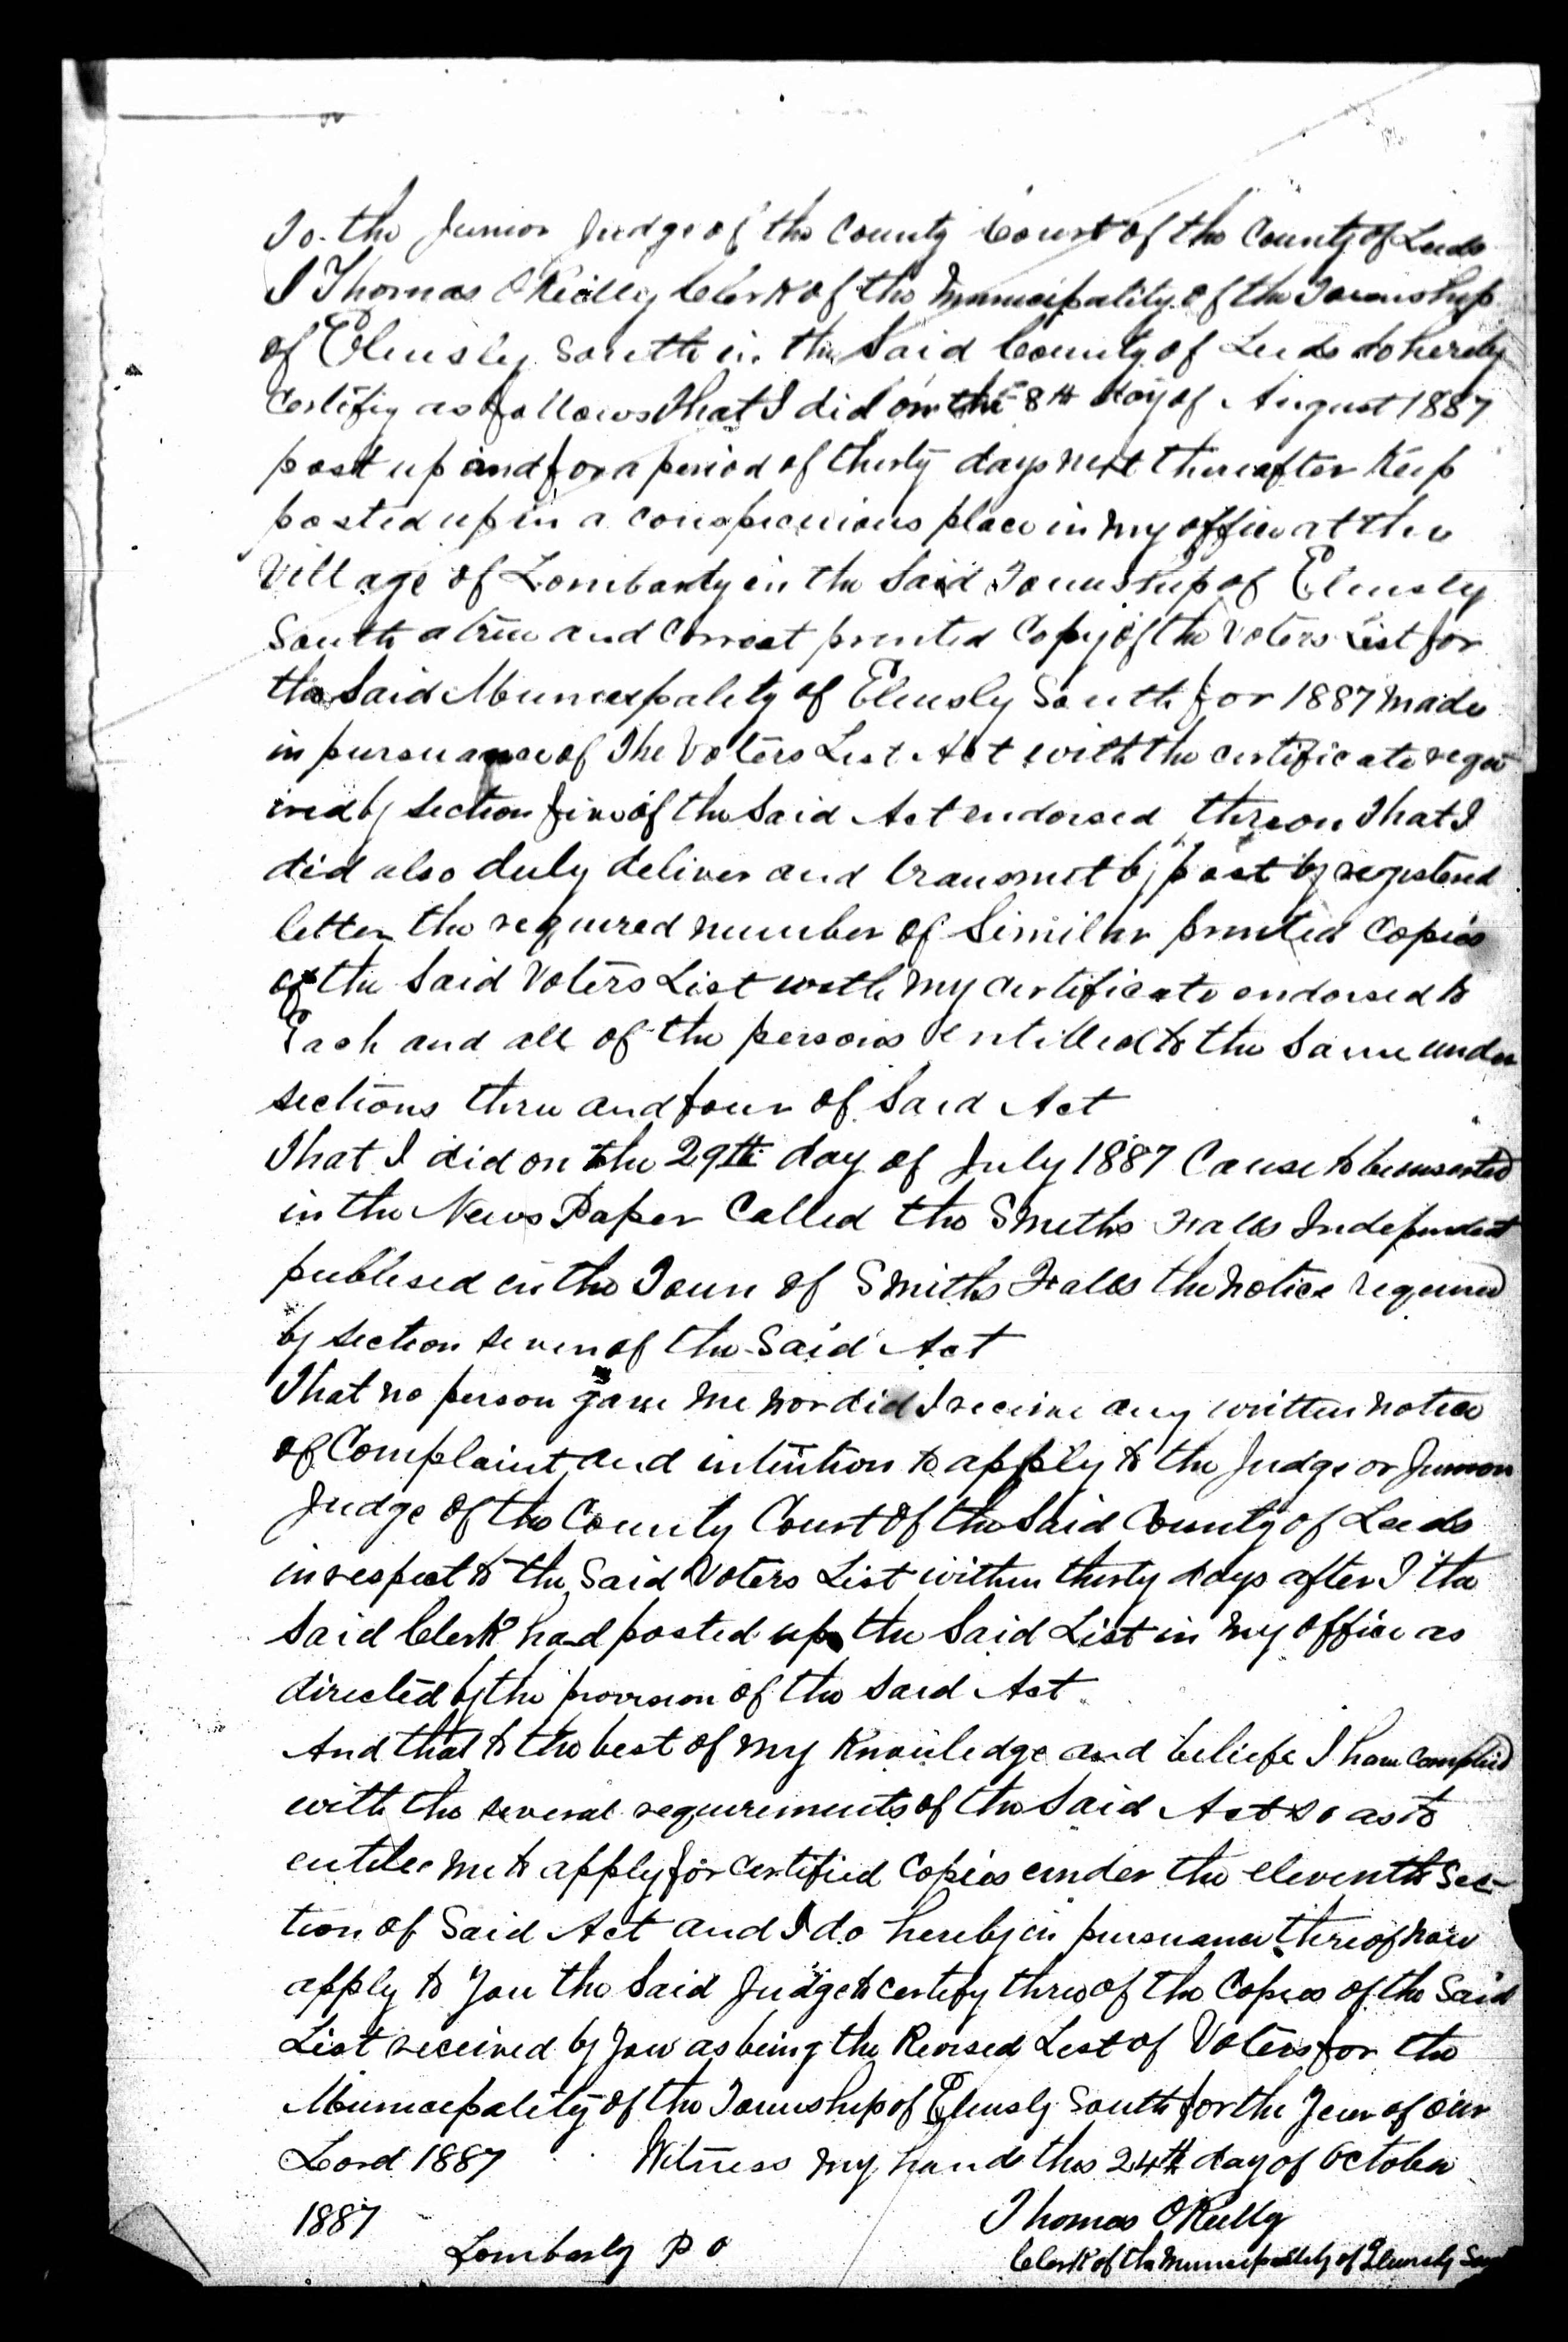 To the Junior Judge of the County Court of the County of Leeds
I Thomas O'Reilly Clerk of the Municipality of the Township
of Elmsley South in the Said County of Leeds do hereby
Certify as follows That I did on the 8th day of August 1887
post up and for a period of thirty days next thereafter Keep
posted up in a conspicuious place in my office at the
Village of Lombardy in the Said Township of Elmsly
South a true and Correct printed Copy of the Voters List for
the Said Municipality of Elmsly South for 1887 made
in pursuance of The Voters List Act with the certificate requ
ired by section five of the Said Act endorsed thereon That I
did also duly deliver and transmit by post by registered
letter the required number of Similar printed Copies
of the Said Voters List with my certificate endorsed to
Each and all of the persons entitled to the Same under
sections three and four of Said Act
That I did on the 29th day of July 1887 Cause to be inserted
in the News Paper Called the Smiths Falls Independent
publised in the Town of Smiths Falls the Notice required
by section seven of the Said Act
That no person gave me nor did I receive any written notice
of Complaint and intention to apply to the Judge or Junior
Judge of the County Court of the Said County of Leeds
in respect to the Said Voters List within thirty days after I the
Said Clerk had posted up the Said List in my office as
directed by the provision of the Said Act
And that to the best of my Knowledge and beliefe I have Complied
with the several requirements of the Said Act so as to
entitle me to apply for Certified Copies under the eleventh Sec-
tion of Said Act and I do hereby in pursuance thereof now
apply to You the Said Judge to certify three of the Copies of the Said
List received by You as being the Revised List of Voters for the
Municipality of the Township of Elmsly South for the Year of our
Lord 1887 Witness my hand this 24th day of October
1887 Thomas O'Reilly
Lombardy P O Clerk of the Municipality of Elmsly